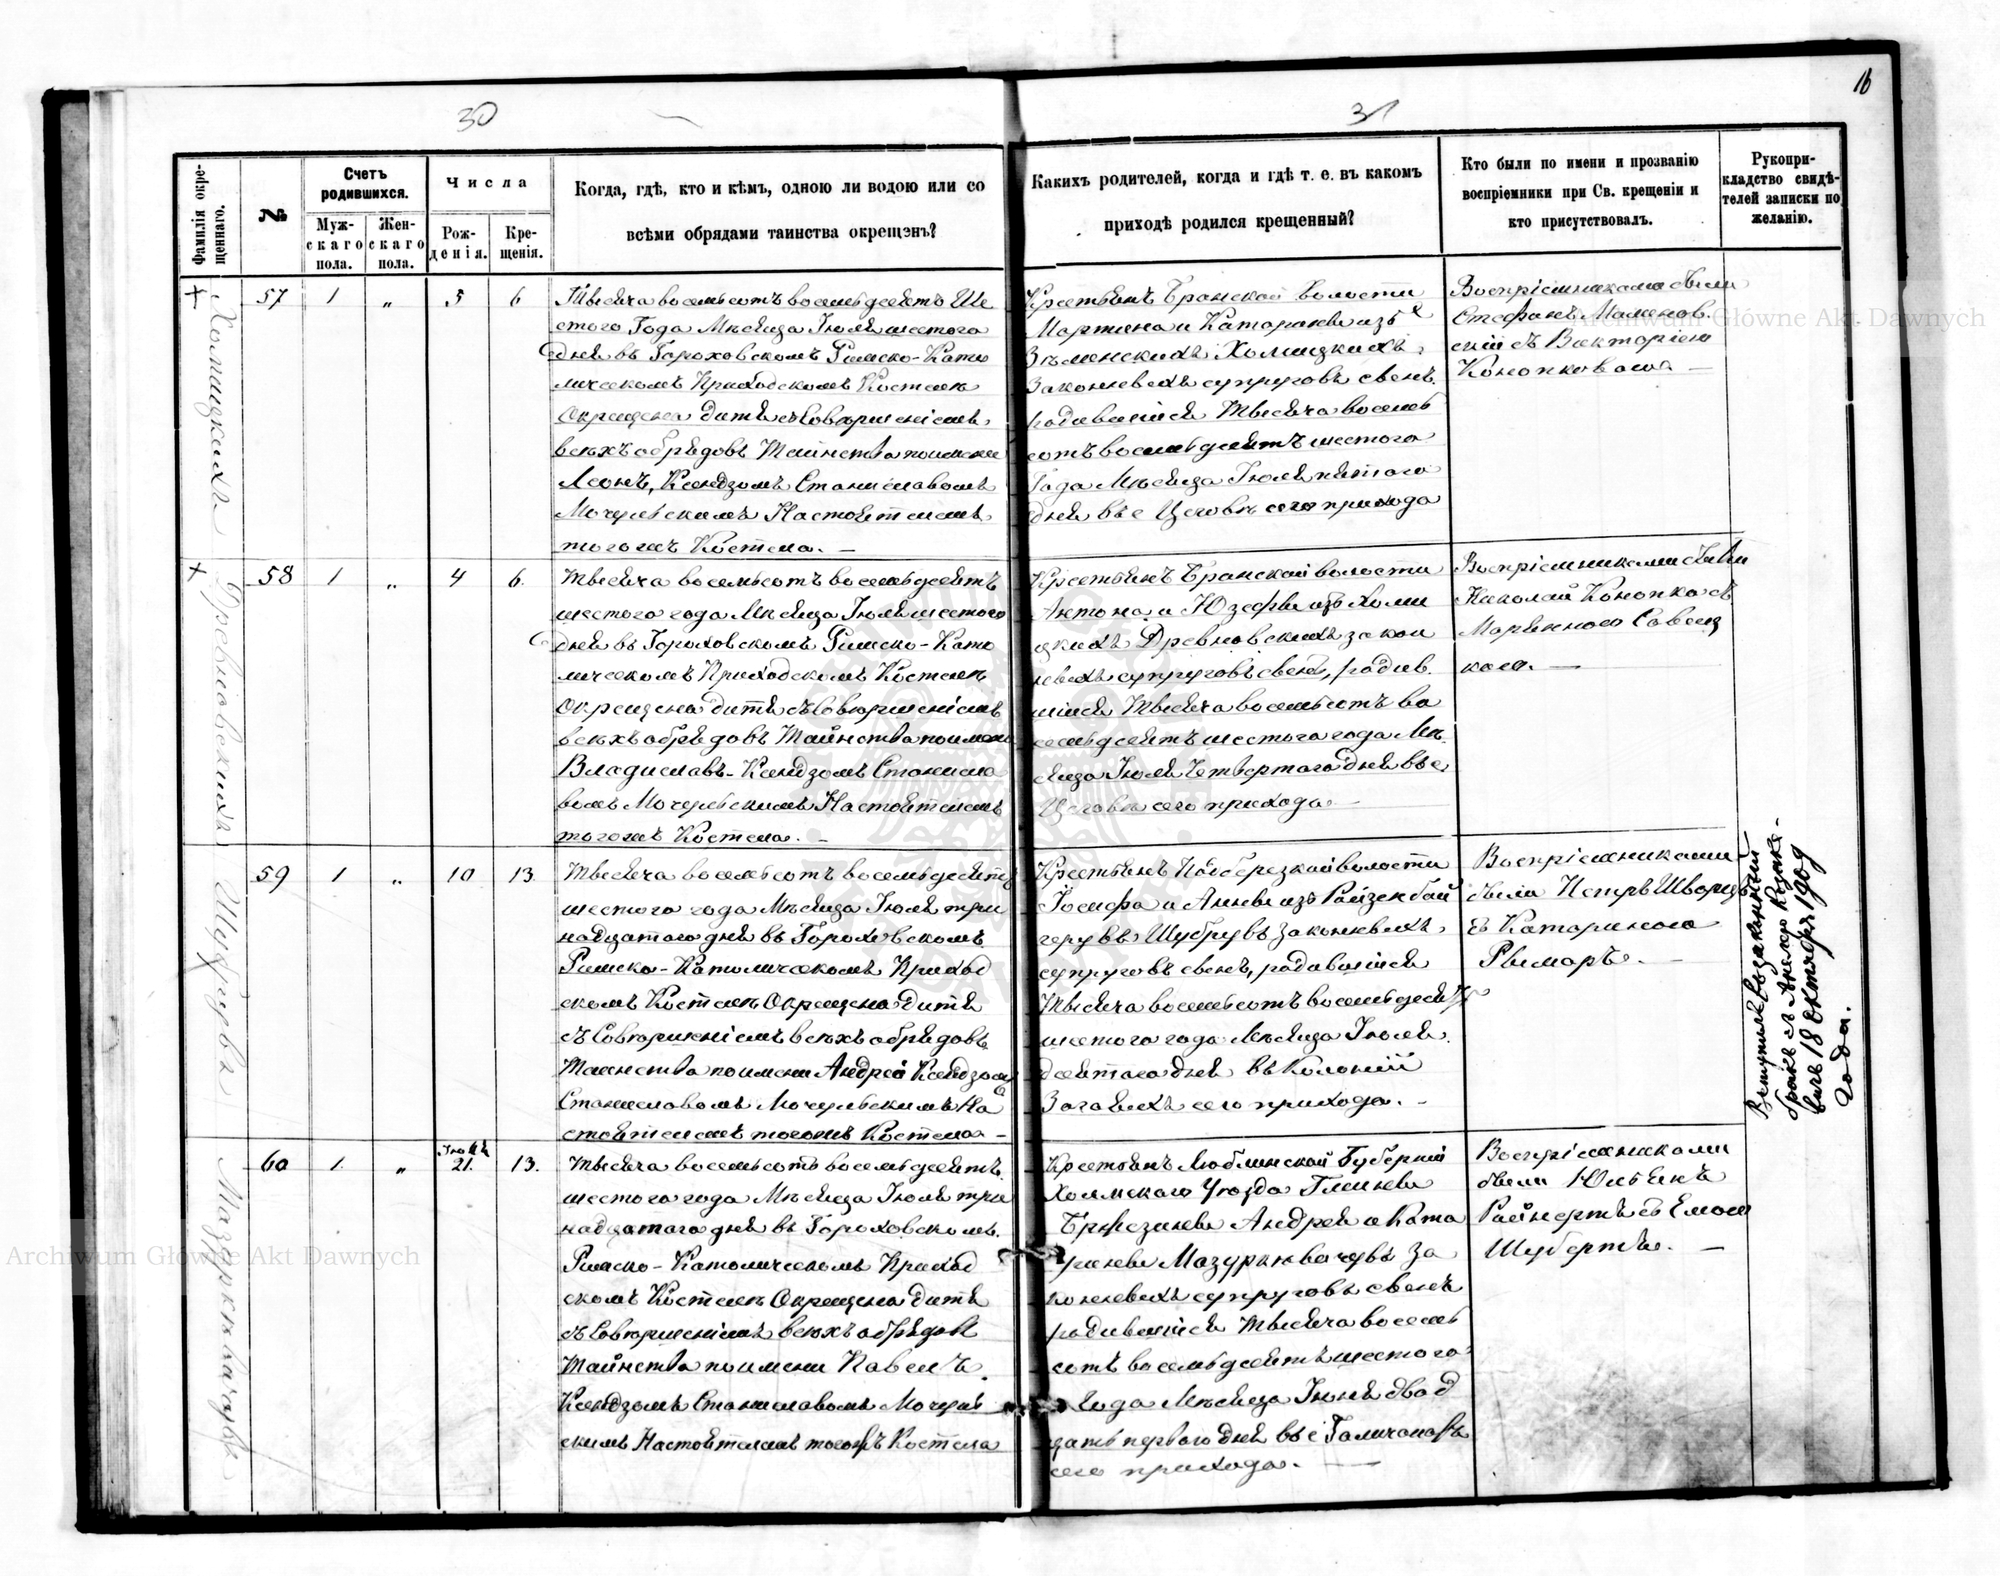 30
31
16
Фамилія окре-
щеннаго.
№
Счетъ
родившихся.
Муж-
скаго
пола.
Жен-
скаго
пола.
Числа
Рож-
денія.
Кре-
щенія.
Когда, гдѣ, кто и кѣмъ, одною ли водою или со
всѣми обрядами таинства окрещэнъ?
Какихъ родителей, когда и гдѣ т. е. въ какомъ
приходѣ родился крещенный?
Кто были по имени и прозванію
воспріемники при Св. крещеніи и
кто присутствовалъ.
Рукопри-
кладство свидѣ-
телей записки по
желанію.
Хомицкихъ
57 1 „ 5 6
Тысяча восемьсотъ восемьдесятъ Ше
стого Года Мѣсяца Іюля шестого
дня въ Гороховскомъ Римско-Като
лическомъ Приходскомъ Костелѣ
Окрещена дитя съ Совершеніемъ
всѣхъ обрядовъ Таинства по имени
Леонъ, Ксендзомъ Станиславомъ
Мочульскимъ Настоятелемъ
тогожъ Костела. —
Крестьянъ Бранской волости
Мартина и Катарины изъ
Зѣменскихъ Хомицкихъ,
Законныхъ супруговъ сынъ,
родившійся Тысяча восемь
сотъ восемьдесятъ шестого
Года Мѣсяца Іюля пятого
дня въ с Цеговѣ сего прихода
Воспріемниками были
Стефанъ Малинов
скій съ Викторіею
Конопковою —
Древновскихъ
58 1 „ 4 6.
Тысяча восемьсотъ восемьдесятъ
шестого года Мѣсяца Іюля шестого
дня въ Гороховскомъ Римско-Като
лическомъ Приходскомъ Костелѣ
Окрещена дитя съ Совершеніемъ
всѣхъ обрядовъ Таинства по имени
Владиславъ-Ксендзомъ Станисла
вомъ Мочульскимъ Настоятелемъ
тогожъ Костела. —
Крестьянъ Бранской волости
Антона и Юзефы изъ Хоми
цкихъ Древновскихъ закон
ныхъ супруговъ сынъ, родив
шійся Тысяча восемьсотъ во
семьдесятъ шестого года Мѣ
сяца Іюля Четвертого дня въ с
Цеговѣ сего прихода. —
Воспріемниками были
Николай Конопка съ
Маріянною Савиц
кою. —
Шубертъ
59 1 „ 10 13.
Тысяча восемьсотъ восемьдесятъ
шестого года Мѣсяца Іюля три
надцатого дня въ Гороховскомъ
Римско-Католическомъ Приход
скомъ Костелѣ Окрещена дитя
съ Совершеніемъ всѣхъ обрядовъ
Таинства по имени Андрей Ксендзомъ
Станиславомъ Мочульскимъ На
стоятелемъ тогожъ Костела —
Іосифа и Анны изъ
супруговъ сынъ, родившійся
Тысяча восемьсотъ восемьдесятъ
шестого года Мѣсяца Іюля
десятого дня въ Колоніи
сего прихода. —
Воспріемниками
были Петръ Шварцъ
съ Катариною
Рымаръ. —
Вступилъ въ законный
18 октября 19
года.
Мазуркѣвичувъ
60 1. „ Іюня 21. 13.
Тысяча восемьсотъ восемьдесятъ
шестого года Мѣсяца Іюля три
надцатого дня въ Гороховскомъ
Римско-Католическомъ Приход
скомъ Костелѣ Окрещена дитя
съ Совершеніемъ всѣхъ обрядовъ
Таинства по имени Павелъ.
Ксендзомъ Станиславомъ Мочуль
скимъ Настоятелемъ тогожъ Костела
Крестьянъ Люблинской Губерніи
Холмскаго Уѣзда Гмины
Андрея и Ката
рины Мазуркѣвичувъ За
конныхъ супруговъ сынъ
родившійся Тысяча восемь
сотъ восемьдесятъ шестого
Года Мѣсяца Іюня двад
цать первого дня въ с Галичанахъ
сего прихода. —
Воспріемниками
были Юльянъ
Райнертъ съ Емою
Шубертъ. —
Archiwum Główne Akt Dawnych
Archiwum Główne Akt Dawnych